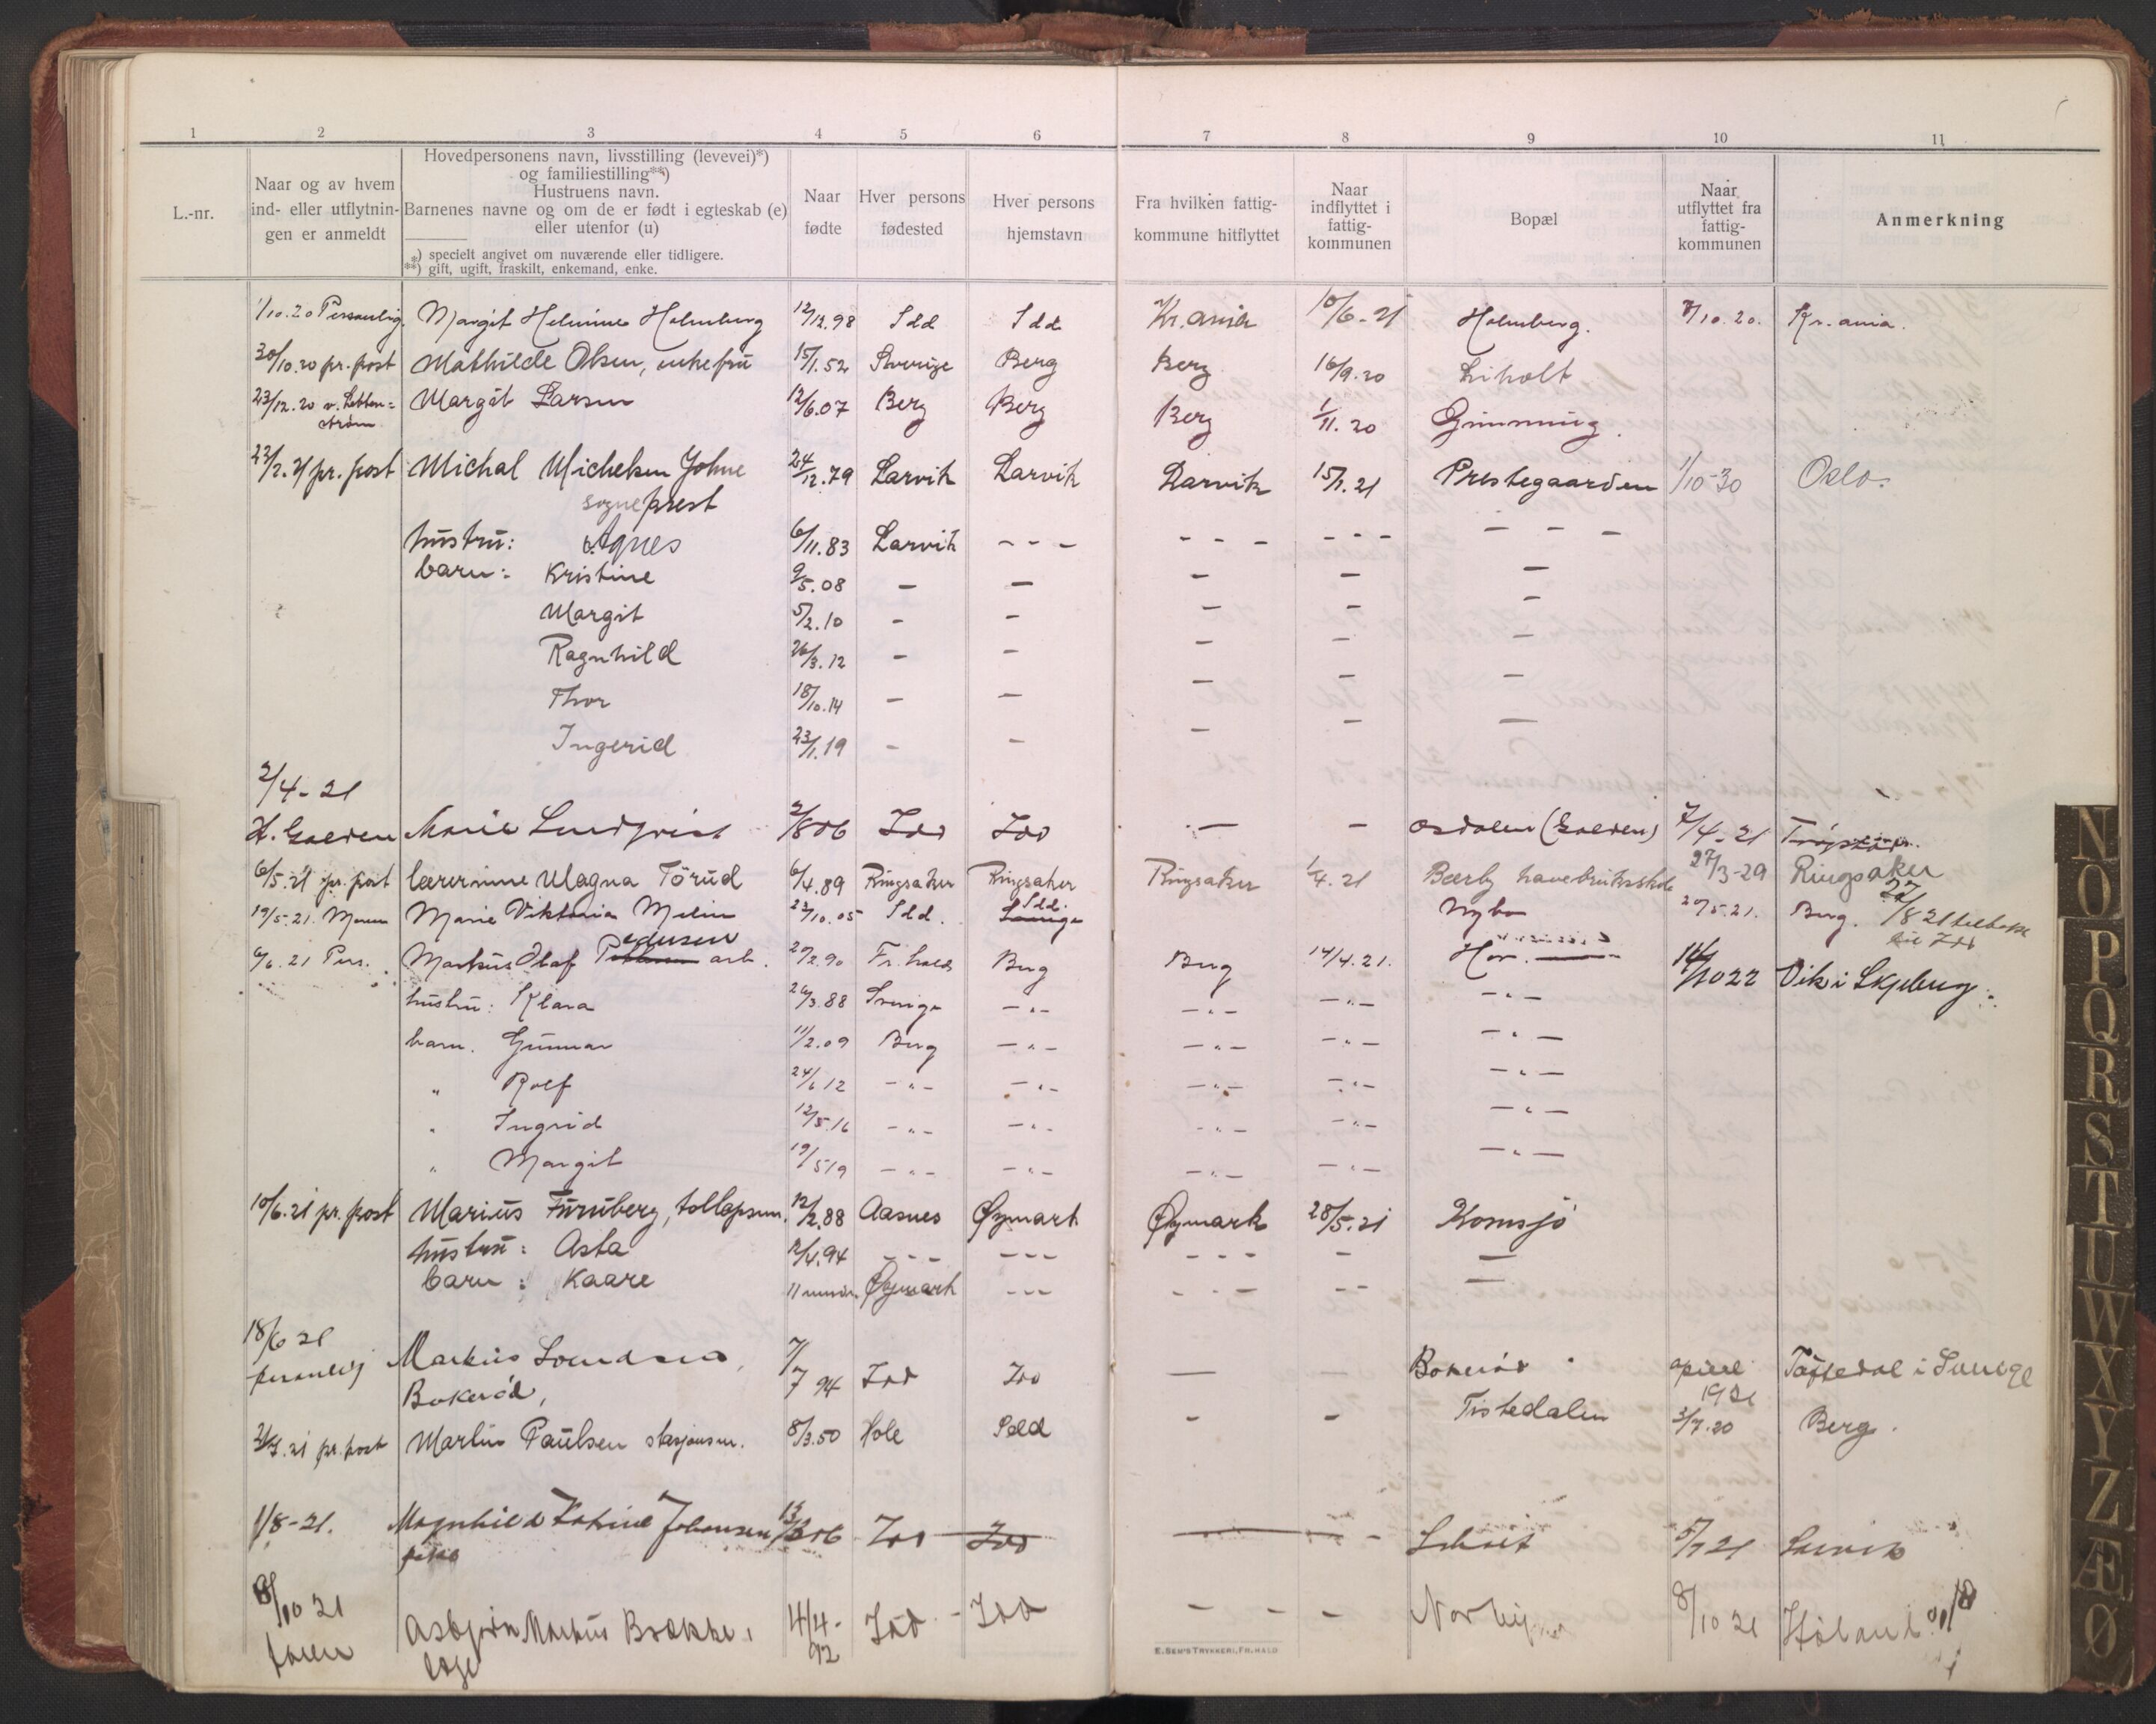 1 2 3 4 5 6 7 8 9 10 11
L.-nr.
Naar og av hvem
ind- eller utflytnin-
gen er anmeldt
Hovedpersonens navn, livsstilling (levevei)*)
og familiestilling**)
Hustruens navn.
Barnenes navne og om de er født i egteskab (e)
eller utenfor (u)
*) specielt angivet om nuværende eller tidligere.
**) gift, ugift, fraskilt, enkemand, enke.
Naar
fødte
Hver persons
fødested
Hver persons
hjemstavn
Fra hvilken fattig-
kommune hitflyttet
Naar
indflyttet i
fattig-
kommunen
Bopæl
Naar
utflyttet fra
fattig-
kommunen
Anmerkning
1/10.20 Personlig. Margit Helmine Holmberg 12/12.98 Idd Idd Kr.ania 10/6-21 Holmberg. 7/10.20. Kr.ania.
30/10.20 pr. post Mathilde Olsen, enkefru 15/1.52 Sverige Berg Berg 16/9.20 Liholt
23/12.20 v. Lebben=
strøm Margit Larsen 12/6.07 Berg Berg Berg 1/11.20 Grimming
23/2.21 pr. post Michal Michelsen Johne 24/12.79 Larvik Larvik Larvik 15/1.21 Prestegaarden 1/10-30 Oslo.
sogneprest
hustru: Agnes 6/11.83 Larvik - - - - - - - - - - - -
barn: Kristine 9/5.08 - - - - -
Margit 5/2.10 - - - - -
Ragnhild 26/3.12 - - - - -
Thor 18/10.14 - - - - -
Ingerid 23/1.19 - - - - -
2/4-21
H. Galden Marie Lundqvist 2/8 06 Idd Idd - - Osdalen (Galden) 7/4-21 Trøgstad.
6/5.21 pr. post lærerinne Magna Törud 6/4.89 Ringsaker Ringsaker Ringsaker 1/4.21 Bærby havebruksskole 27/3-29 Ringsaker
19/5-21. Marie Viktoria Melin 23/10.05 Idd. Idd. Nybo 20/5.21. Berg. 22/8 21 tilbake
til Idd
6/6.21 Pers. Markus Olaf Pedersen arb. 27/2.90 Fr.hald Berg Berg 14/4.21. Hov. 14/10 22 Vik i Skjeberg
hustru: Klara 26/3.88 Sverige -"- -"- -"- -"-
barn. Gunnar 11/2.09 Berg -"- -"- -"- -"-
" Rolf 24/6 12 -"- -"- -"- -"- -"-
" Ingrid 12/5.16 -"- -"- -"- -"- -"-
" Margit 19/5 19 -"- -"- -"- -"- -"-
10/6.21 pr. post Marius Furuberg, tollopsm. 12/2.88 Aasnes Øymark Øymark 28/5.21 Komsjö
hustru: Asta 12/4.94 - - - - - - - - - - -
barn: Kaare 11 mndr. Øymark - - - - - - - - -
18/6 21
personlig Markus 7/7 94 Idd Idd - - Bokerød april
1921 Töftedal i Sverige
Bokeröd,
2/7.21 pr. post Martin Paulsen stasjonsm. 8/3.50 Hole Idd - - Tistedalen 3/7.20 Berg.
1/8-21. Magnhild Katrine Johansen 13/3 06 Idd Idd - - 5/7 21
pike
8/10 21
Asbjørn Markus Brække, 4/4-92 Idd - Idd - - - Norby 8/10 21 Høland
E. SEM'S TRYKKERI, FR.HALD
N
O
P
Q
R
S
T
U
W
X
Y
Z
Æ
Ø